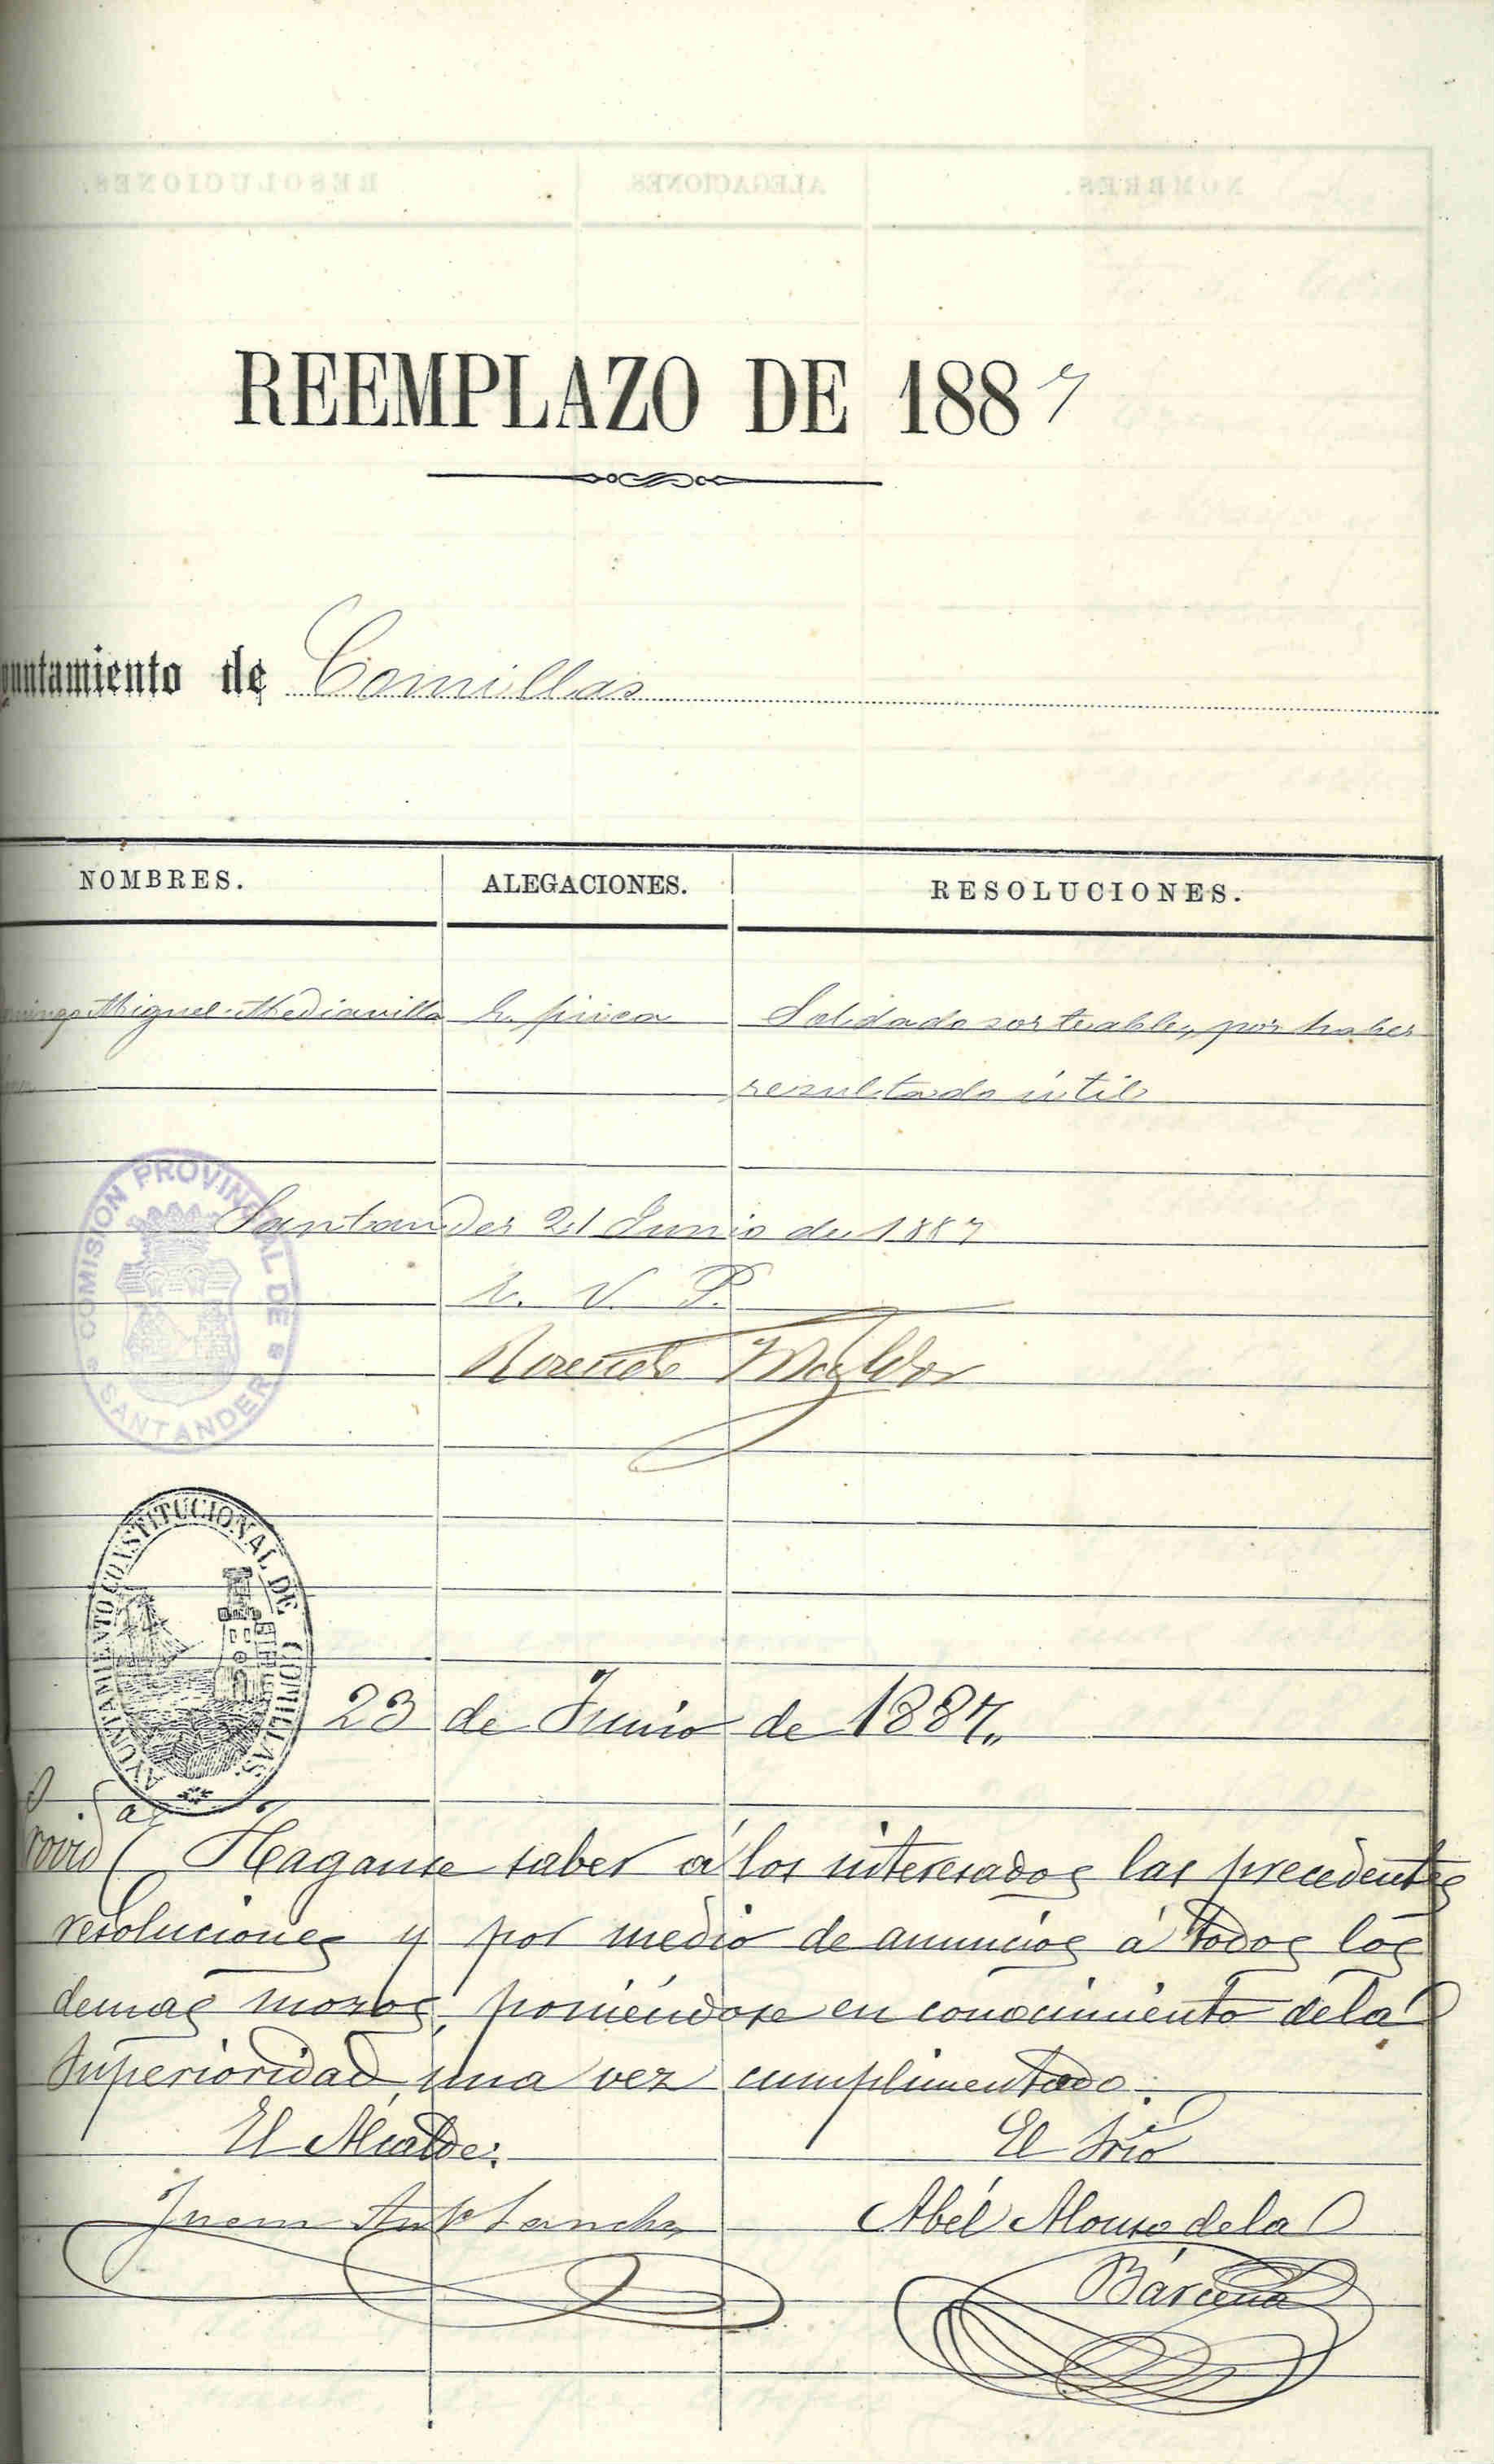 REEMPLAZO DE 1887
yuntamiento de Comillas
NOMBRES. ALEGACIONES. RESOLUCIONES.
mingo Miguel Mediavilla Soldado sorteable, por haber
resultado útil
COMISION PROVINCIAL DE SANTANDER
Santander 21 Junio de 1887
V. P.
AYUNTAMIENTO CONSTITUCIONAL DE COMILLAS.
23 de Junio de 1887.
Provid.a Haganse saber á los interesados las precedentes
resoluciones y por medio de anuncios á todos los
demas mozos, poniéndose en conocimiento de la
Superioridad, una vez cumplimentado.
El Alcalde. El Srio
Juan Ant.o Sanchez Abél Alonso de la
Bárcena